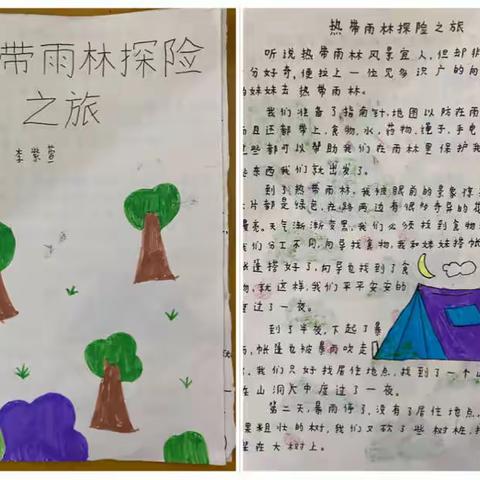 带雨林探险
之旅
李紫萱
热带雨林探险之旅
听说热带雨林风景宜人,但却非
分好奇,便拉上一位见多识广的向
的妹妹去热带雨林。
我们准备了指南针,地图以防在雨
而且还都带上,食物,水,药物,绳子,手电
这些都可以帮助我们在雨林里保护我
些东西我们就出发了。
到了热带雨林,我被眼前的景象
片都是绿色,在路两边有很多奇异的花
漂亮。天气渐渐变黑,我们必须找到食物
我们分工不同,向导找食物,我和妹妹搭帐
帐篷搭好了,向导也找到了食
物,就这样,我们平平安安的
度过了一夜。
到了半夜,下起了暴
雨,帐篷也被暴雨吹走
,我们只好找居住地点,找到了一个山
在山洞大中度过了一夜。
第二天,暴雨停了,没有了居住地点,
果粗壮的树,我们又砍了些树桩,
屋在大树上。